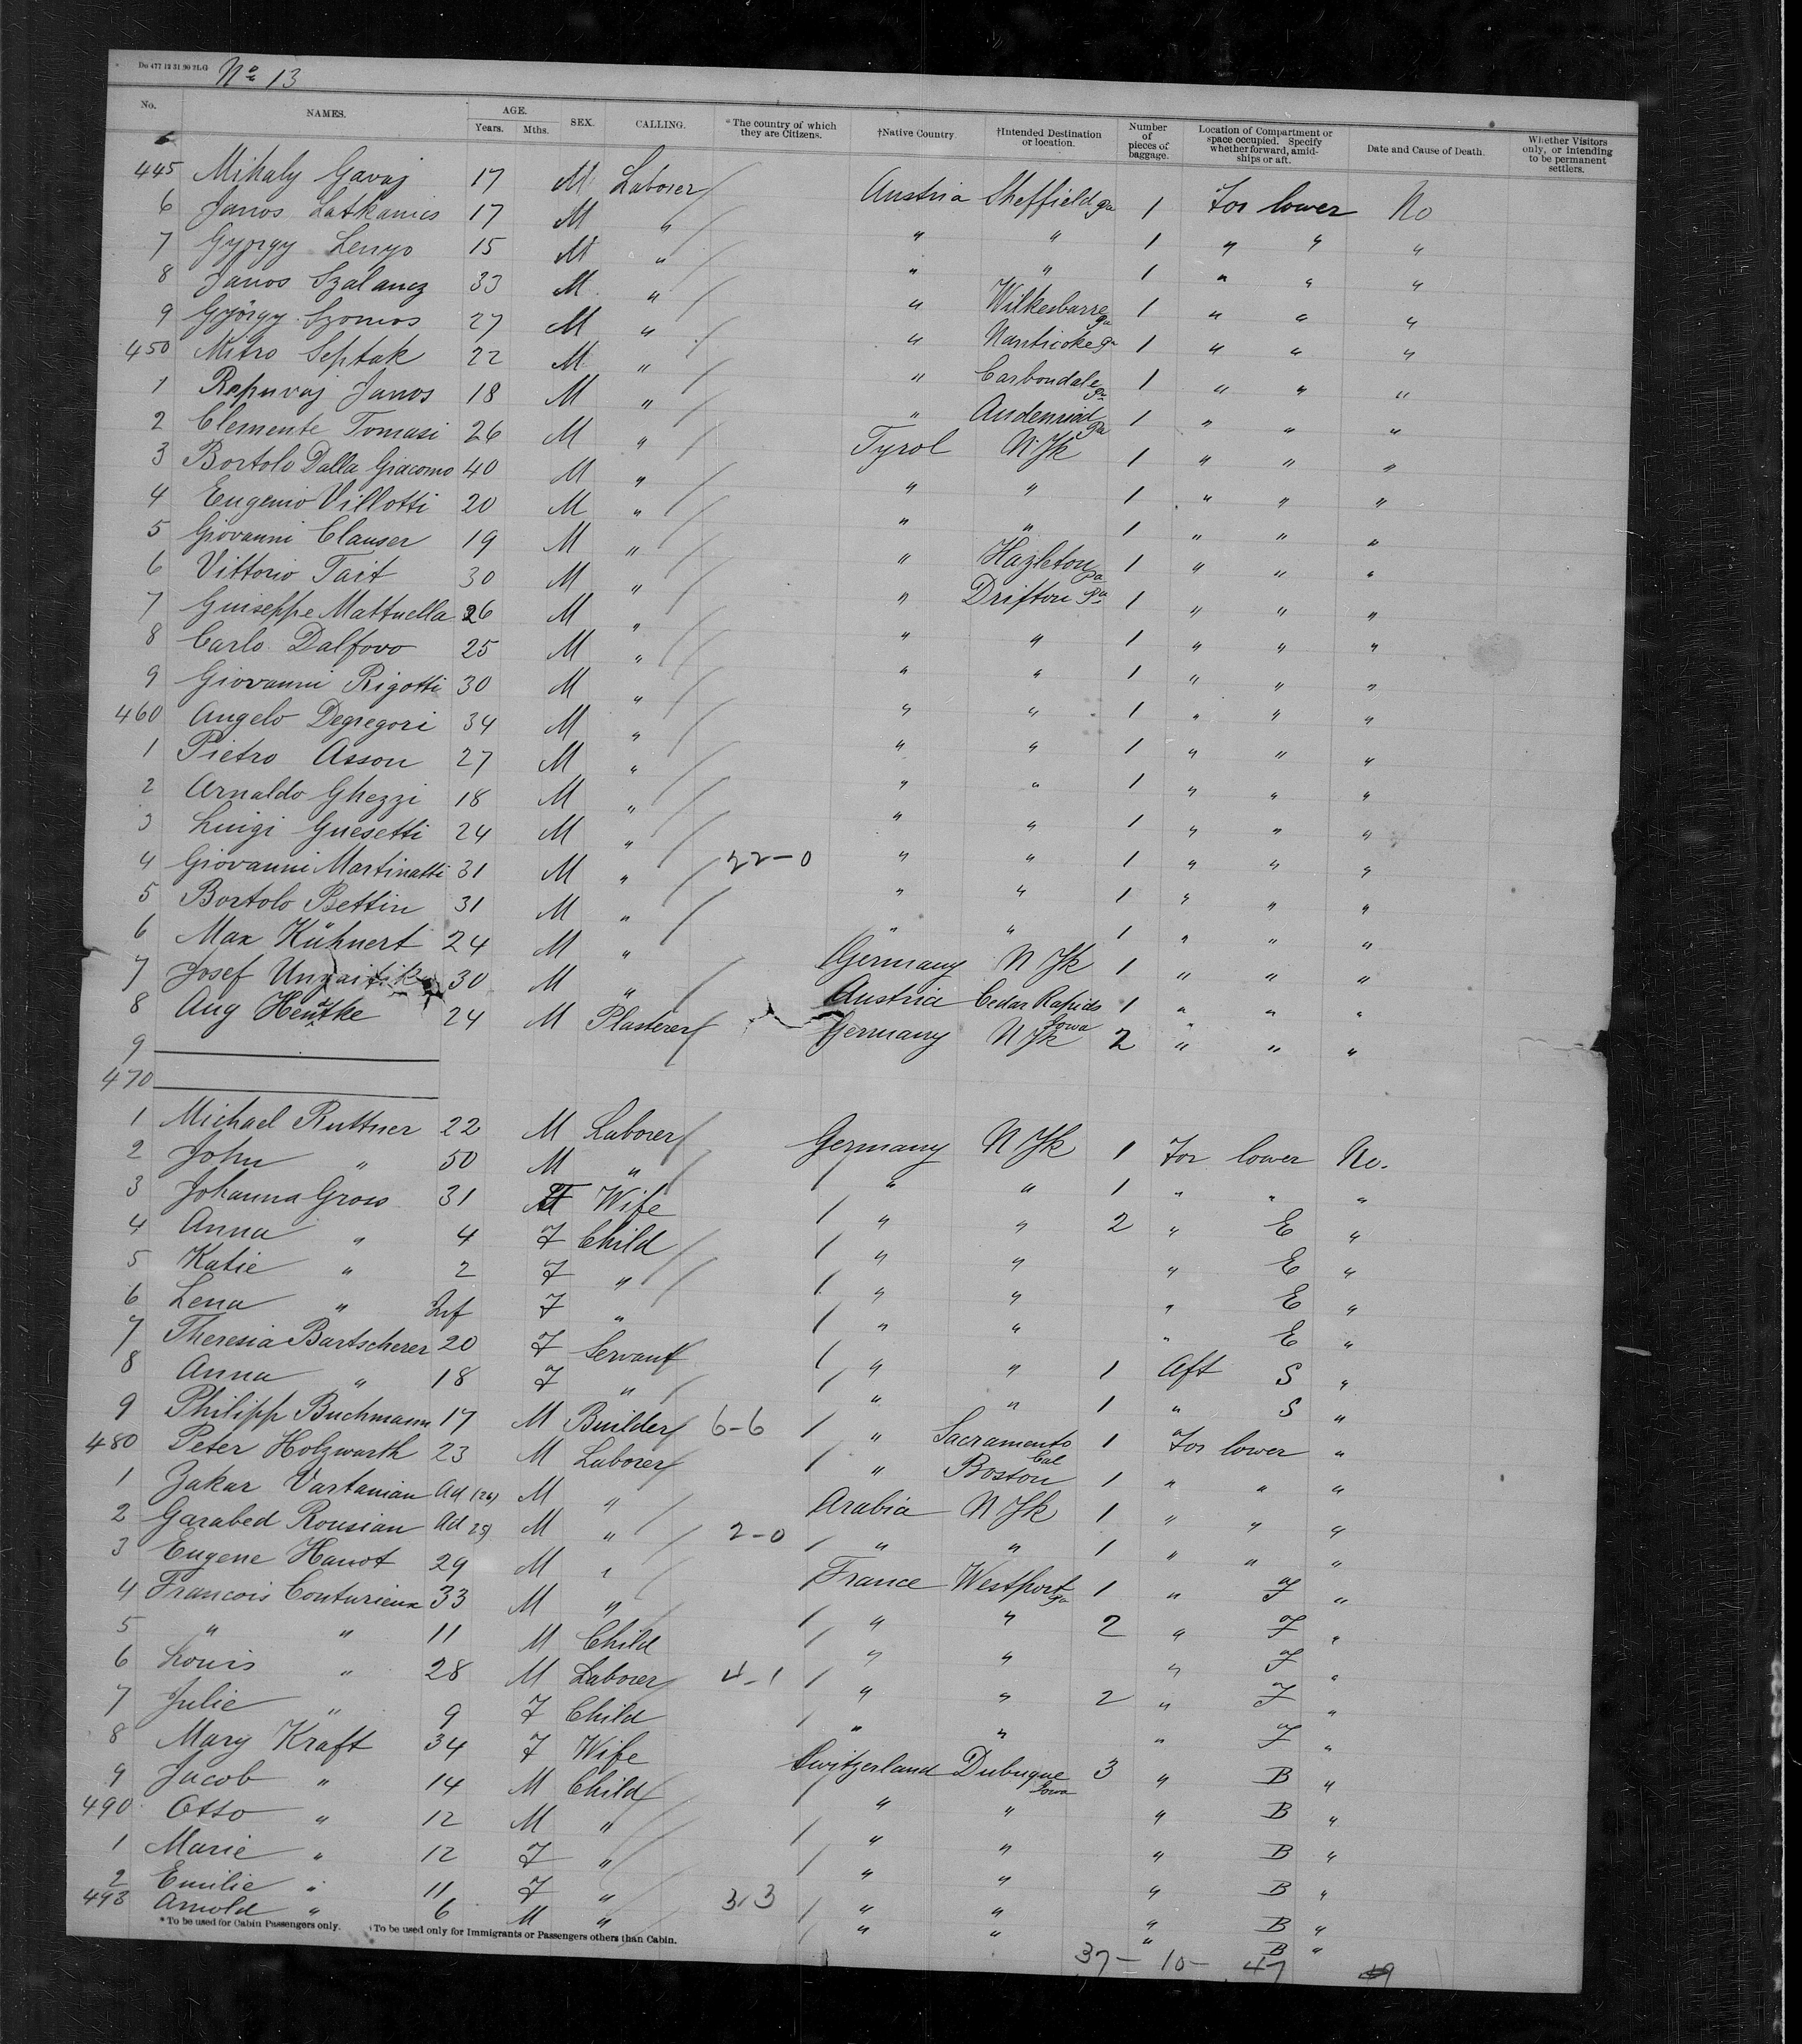 Do 477 12 31 90 2L.G Nº 13
No. NAMES. AGE. Years. Mths. SEX. CALLING. *The country of which they are Citizens. †Native Country †Intended Destination or location. Number of pieces of baggage. Location of Compartment or space occupied. Specify whether forward, amidships or aft. Date and Cause of Death. Whether Visitors only, or intending to be permanent settlers.
445 Mihaly Gavaj 17 M Laborer Austria Sheffield Pa 1 For lower No
6 Janos Latkanics 17 M " " " 1 " " "
7 György Lenyo 15 M " " " 1 " " "
8 Janos Szalancz 33 M " " Wilkesbarre Pa 1 " " "
9 György Szomos 27 M " " Nanticoke Pa 1 " " "
450 Mitro Septak 22 M " " Carbondale Pa 1 " " "
1 Repuvaj Janos 18 M " " Audenried Pa 1 " " "
2 Clemente Tomasi 26 M " Tyrol N.Yk 1 " " "
3 Bortolo Dalla Giacomo 40 M " " " 1 " " "
4 Eugenio Villotti 20 M " " " 1 " " "
5 Giovanni Clauser 19 M " " Hazleton Pa 1 " " "
6 Vittorio Tait 30 M " " Drifton Pa 1 " " "
7 Guiseppe Mattuella 26 M " " " 1 " " "
8 Carlo Dalfovo 25 M " " " 1 " " "
9 Giovanni Rigotti 30 M " " " 1 " " "
460 Angelo Degregori 34 M " " " 1 " " "
1 Pietro Asson 27 M " " " 1 " " "
2 Arnaldo Ghezzi 18 M " " " 1 " " "
3 Luigi Guesetti 24 M " " " 1 " " "
4 Giovanni Martinatti 31 M " 22-0 " " 1 " " "
5 Bortolo Bettin 31 M " " " 1 " " "
6 Max Kühnert 24 M " Germany N Yk 1 " " "
7 Josef 30 M " Austria Cedar Rapids Iowa 1 " " "
8 Aug Hentke 24 M Plasterer Germany N Yk 2 " " "
9
470
1 Michael Ruttner 22 M Laborer Germany N Yk 1 For lower No.
2 John " 50 M " " " 1 " " "
3 Johanna Gross 31 F Wife " " 2 " E "
4 Anna " 4 F Child " " " E "
5 Katie " 2 F " " " " E "
6 Lena " Inf F " " " " E "
7 Theresia Bartscherer 20 F Servant " " 1 Aft S "
8 Anna " 18 F " " " 1 " S "
9 Philipp Buchmann 17 M Builder 6-6 " Sacramento Cal 1 For lower "
480 Peter Holzwarth 23 M Laborer " Boston 1 " " "
1 Zakar Vartanian Ad (26) M " Arabia N Yk 1 " " "
2 Garabed Rousian Ad 25) M " 2-0 " " 1 " " "
3 Eugene Hanot 29 M " France Westport Pa 1 " F "
4 Francois Couturieux 33 M " " " 2 " F "
5 " " 11 M Child " " " F "
6 Louis " 28 M Laborer 4-1 " " 2 " F "
7 Julie " 9 F Child " " " F "
8 Mary Kraft 34 F Wife Switzerland Dubuque Iowa 3 " B "
9 Jacob " 14 M Child " " " B "
490 Otto " 12 M " " " " B "
1 Marie " 12 F " " " " B "
2 Emilie " 11 F " " " " B "
493 Arnold " 6 M " 3-3 " " " B "
*To be used for Cabin Passengers only. †To be used only for Immigrants or Passengers others than Cabin.
37 - 10 - 47